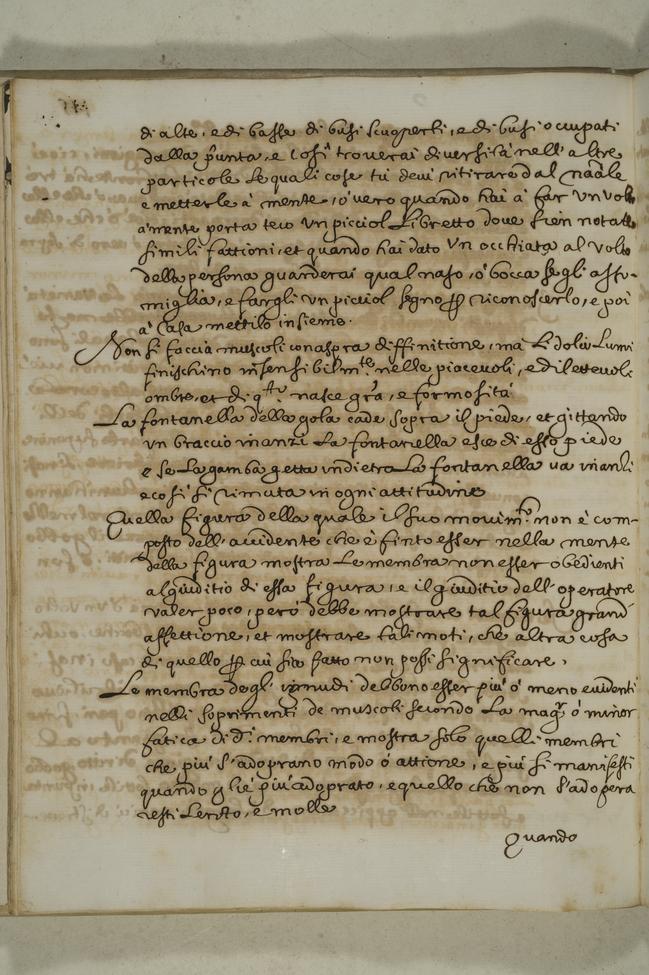 di alte, e di basse di busi scuoperti, e di busi occupati
dalla punta, e così troverai diversità nell'altre
particole le quali cose tu devi ritirare dal naãle
e metterle à mente, ò vero quando hai à far un volto
à mente porta teco un picciol Libretto dove sien notate
simili fattioni, et quando hai dato un occhiata al volto
della persona guarderai qual naso, ò bocca segli asso-
miglia, e fargli un picciol segno ꝑ riconoscerlo, e poi
à casa mettilo insieme.
Non si faccia muscoli con aspra diffinitione, mà li dolci Lumi
finischino insensibilm.te nelle piacevoli, e dilettevoli
ombre, et di q.to nasce grã, e formosità
La fontanella della gola cade sopra il piede, et gittando
un braccio inanzi La fontanella esce di esso piede
e se La gamba getta indietro La fontanella va inanzi
e così si rimuta in ogni attitudine
Quella figura della quale il suo movim.to non è com-
posto dell'accidente che è finto esser nella mente
della figura mostra Le membra non esser obedienti
al giuditio di essa figura, e il giuditio dell'operatore
valer poco, però debbe mostrare tal figura grand'
affettione, et mostrare tali moti, che altra cosa
di quello ꝑ cui sia fatto non possi significare.
Le membra degl'ignudi debbono esser più ò meno evidenti
nelli scoprimenti de muscoli secondo La mag.r ò minor
fatica di d.i membri, e mostra solo quelli membri
che più s'adoprano modo ò attione, e più si manifesti
quando gliè più adoprato, e quello che non s'adopera
resti Lento, e molle
Quando